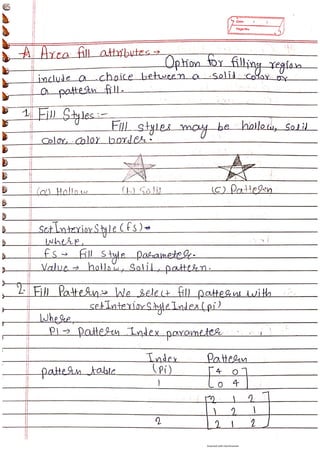 A Area fill attributes →
Option for filling region
include a choice between a solid color or
a pattern fill.
1. Fill Styles :-
Fill styles may be hollow, solid
color, color border.
(a) Hollow (b) Solid (c) Pattern
setInteriorStyle (fs) →
Where,
fs → fill style parameter.
Value → hollow, Solid, pattern.
2. Fill Pattern → We select fill patterns with
setInteriorStyleIndex (pi)
Where,
Pi → pattern Index parameter
Index Pattern
pattern table (Pi) 4 0
1 0 4
2 1 2
1 2 1
2 2 1 2